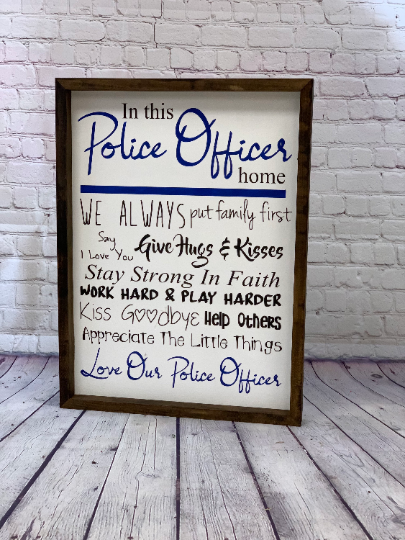 In this
Police Officer
home
WE ALWAYS put family first
Say I Love You Give Hugs & Kisses
Stay Strong In Faith
WORK HARD & PLAY HARDER
Kiss G♡♡dbye Help Others
Appreciate The Little Things
Love Our Police Officer